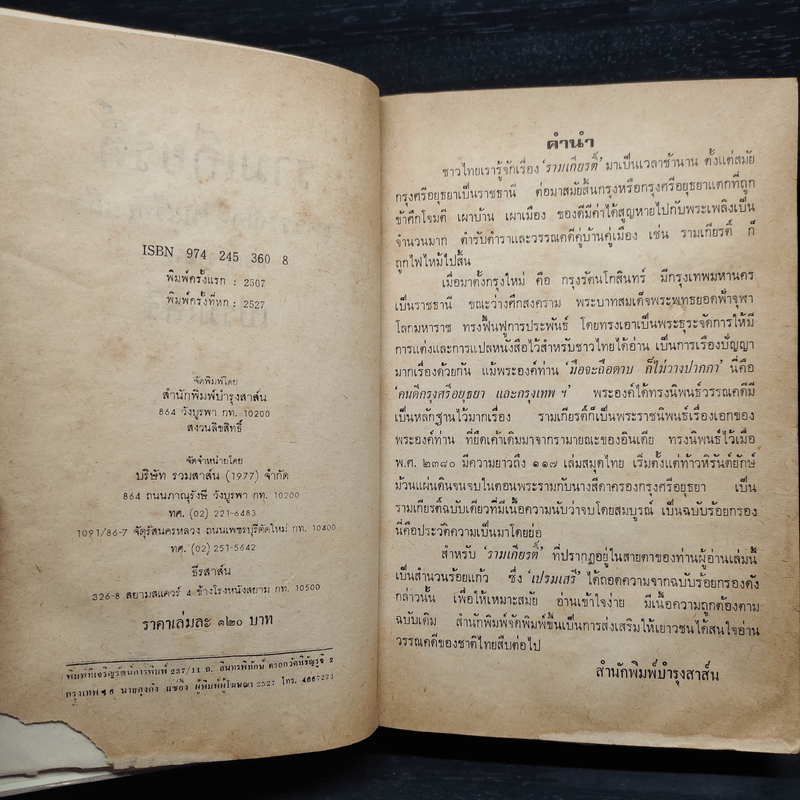 ISBN 974 245 360 8
พิมพ์ครั้งแรก : 2507
พิมพ์ครั้งที่หก : 2527
จัดพิมพ์โดย
สำนักพิมพ์บำรุงสาส์น
864 วังบูรพา กท. 10200
สงวนลิขสิทธิ์
จัดจำหน่ายโดย
บริษัท รวมสาส์น (1977) จำกัด
864 ถนนภาณุรังษี วังบูรพา กท. 10200
ทศ. (02) 221-6483
1091/86-7 จัตุรัสนครหลวง ถนนเพชรบุรีตัดใหม่ กท. 10400
ทศ. (02) 251-5642
ธีรสาส์น
326-8 สยามสแควร์ 4 ข้างโรงหนังสยาม กท. 10500
ราคาเล่มละ ๑๒๐ บาท
พิมพ์ที่เจริญรัตน์การพิมพ์ 237/11 ถ. อินทรพิทักษ์ ตรอกวัดหิรัญรูจี ร
กรุงเทพ ฯ 6 นายคุงกัง แซ่อึง ผู้พิมพ์ผู้โฆษณา 2527 โทร. 4667225
คำนำ
ชาวไทยเรารู้จักเรื่อง ‘รามเกียรติ์’ มาเป็นเวลาช้านาน ตั้งแต่สมัย
กรุงศรีอยุธยาเป็นราชธานี ต่อมาสมัยสิ้นกรุงหรือกรุงศรีอยุธยาแตกที่ถูก
ข้าศึกโจมตี เผาบ้าน เผาเมือง ของดีมีค่าได้สูญหายไปกับพระเพลิงเป็น
จำนวนมาก ตำรับตำราและวรรณคดีคู่บ้านคู่เมือง เช่น รามเกียรติ์ ก็
ถูกไฟไหม้ไปสิ้น
เมื่อมาตั้งกรุงใหม่ คือ กรุงรัตนโกสินทร์ มีกรุงเทพมหานคร
เป็นราชธานี ขณะว่างศึกสงคราม พระบาทสมเด็จพระพุทธยอดฟ้าจุฬา
โลกมหาราช ทรงฟื้นฟูการประพันธ์ โดยทรงเอาเป็นพระธุระจัดการให้มี
การแต่งและการแปลหนังสือไว้สำหรับชาวไทยได้อ่าน เป็นการเรืองปัญญา
มากเรื่องด้วยกัน แม้พระองค์ท่าน ‘มือจะถือดาบ ก็ไม่วางปากกา’ นี่คือ
‘คนดีกรุงศรีอยุธยา และกรุงเทพ ฯ’ พระองค์ได้ทรงนิพนธ์วรรณคดีมี
เป็นหลักฐานไว้มากเรื่อง รามเกียรติ์ก็เป็นพระราชนิพนธ์เรื่องเอกของ
พระองค์ท่าน ที่ยึดเค้าเดิมมาจากรามายณะของอินเดีย ทรงนิพนธ์ไว้เมื่อ
พ.ศ. ๒๓๘๐ มีความยาวถึง ๑๑๗ เล่มสมุดไทย เริ่มตั้งแต่ท้าวหิรันต์ยักษ์
ม้วนแผ่นดินจนจบในตอนพระรามกับนางสีดาครองกรุงศรีอยุธยา เป็น
รามเกียรติ์ฉบับเดียวที่มีเนื้อความนับว่าจบโดยสมบูรณ์ เป็นฉบับร้อยกรอง
นี่คือประวัติความเป็นมาโดยย่อ
สำหรับ ‘รามเกียรติ์’ ที่ปรากฏอยู่ในสายตาของท่านผู้อ่านเล่มนี้
เป็นสำนวนร้อยแก้ว ซึ่ง ‘เปรมเสรี’ ได้ถอดความจากฉบับร้อยกรองดัง
กล่าวนั้น เพื่อให้เหมาะสมัย อ่านเข้าใจง่าย มีเนื้อความถูกต้องตาม
ฉบับเดิม สำนักพิมพ์จัดพิมพ์ขึ้นเป็นการส่งเสริมให้เยาวชนได้สนใจอ่าน
วรรณคดีของชาติไทยสืบต่อไป
สำนักพิมพ์บำรุงสาส์น